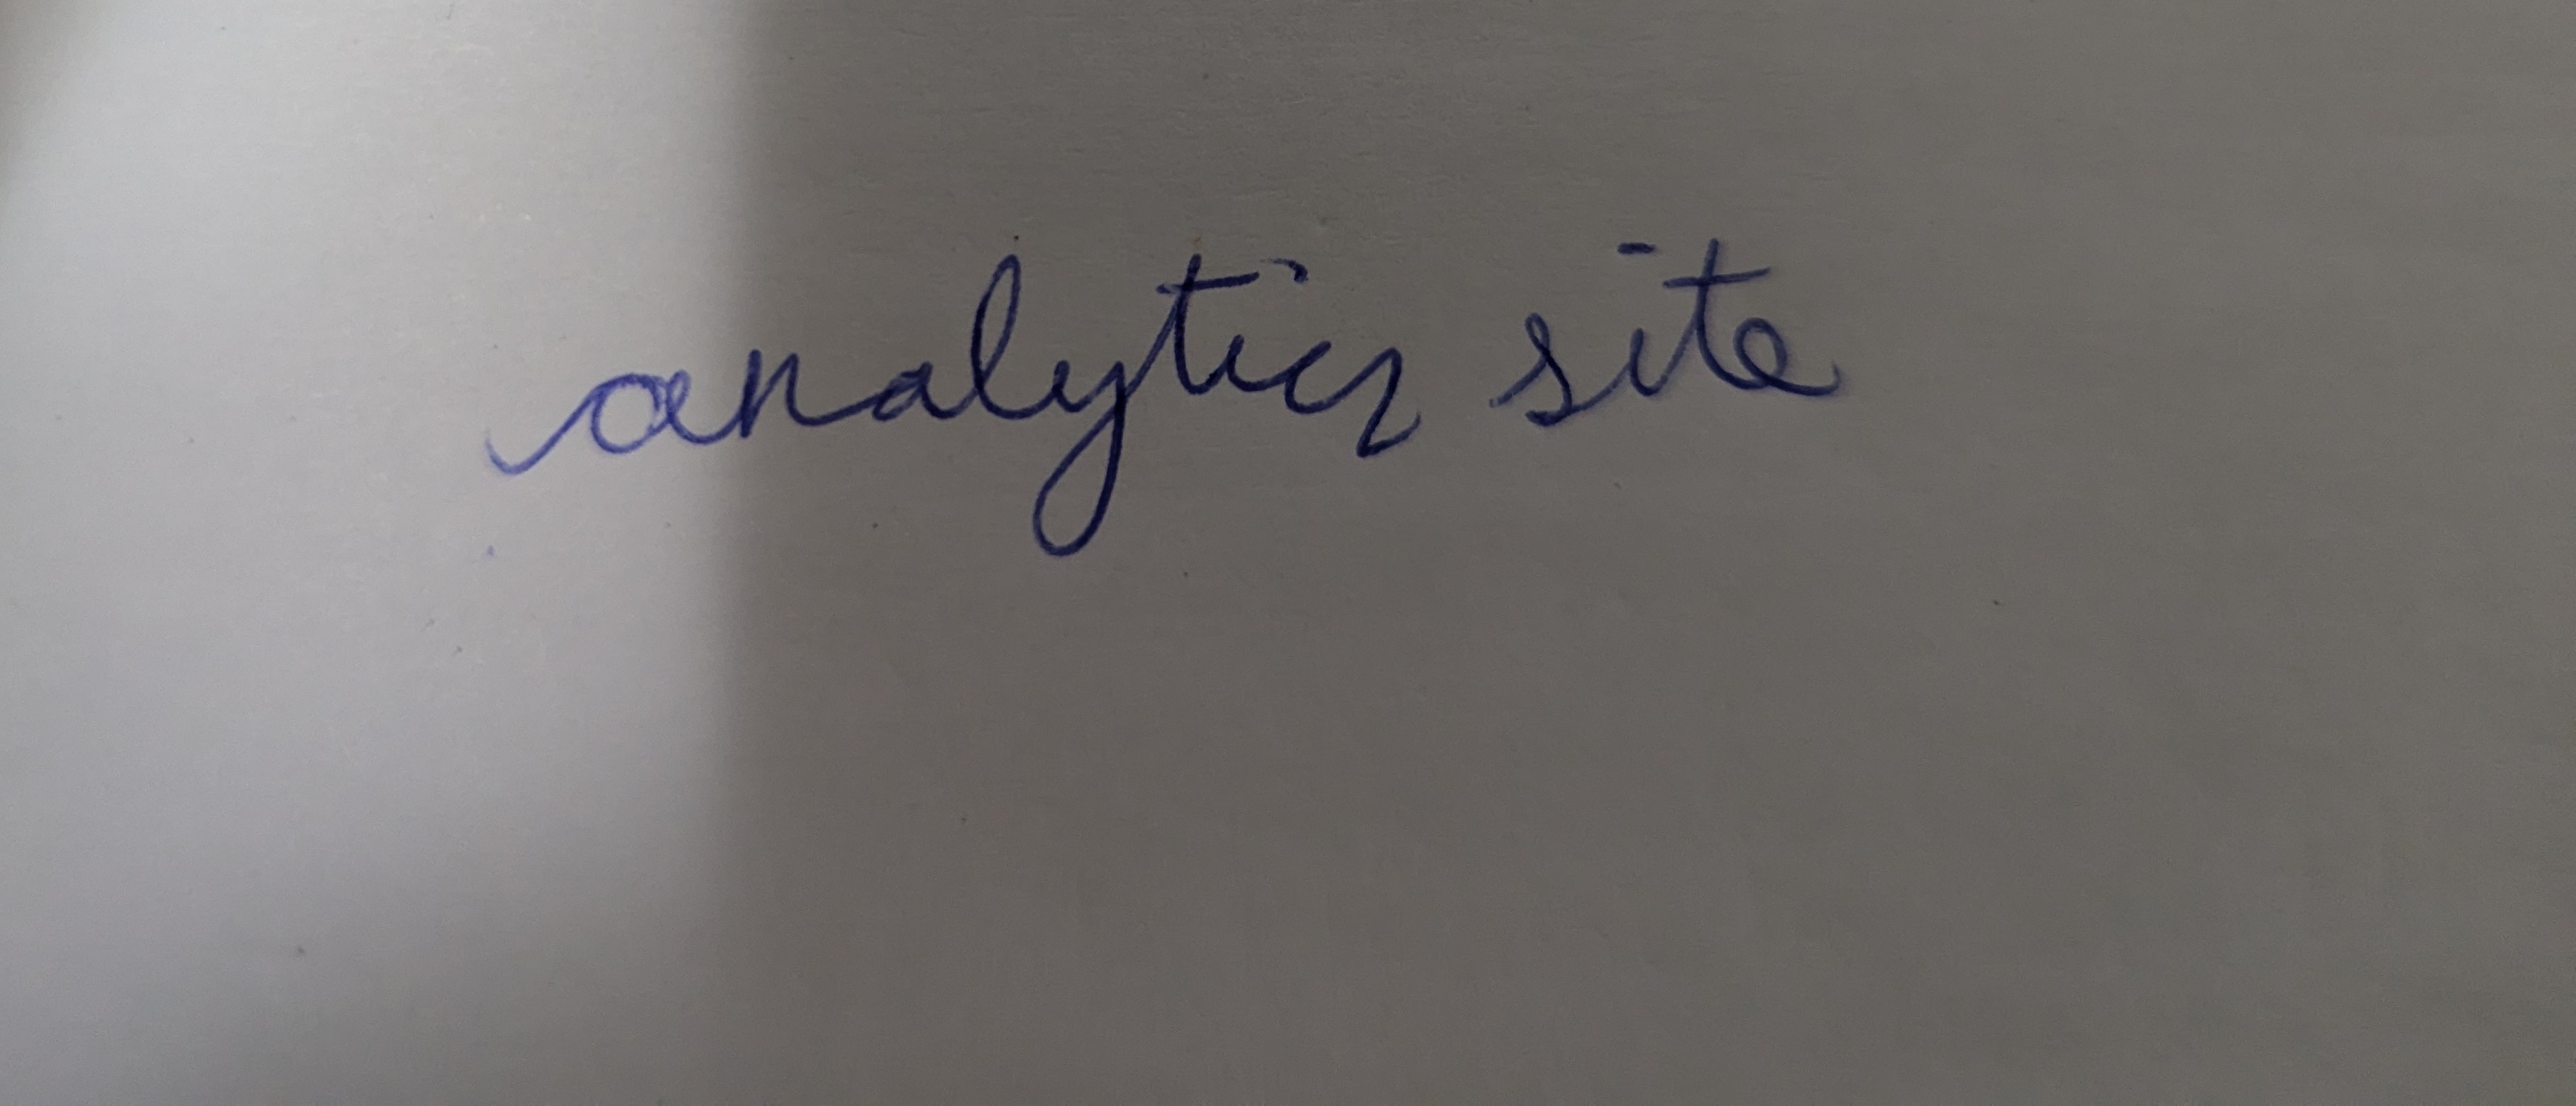 analytics site